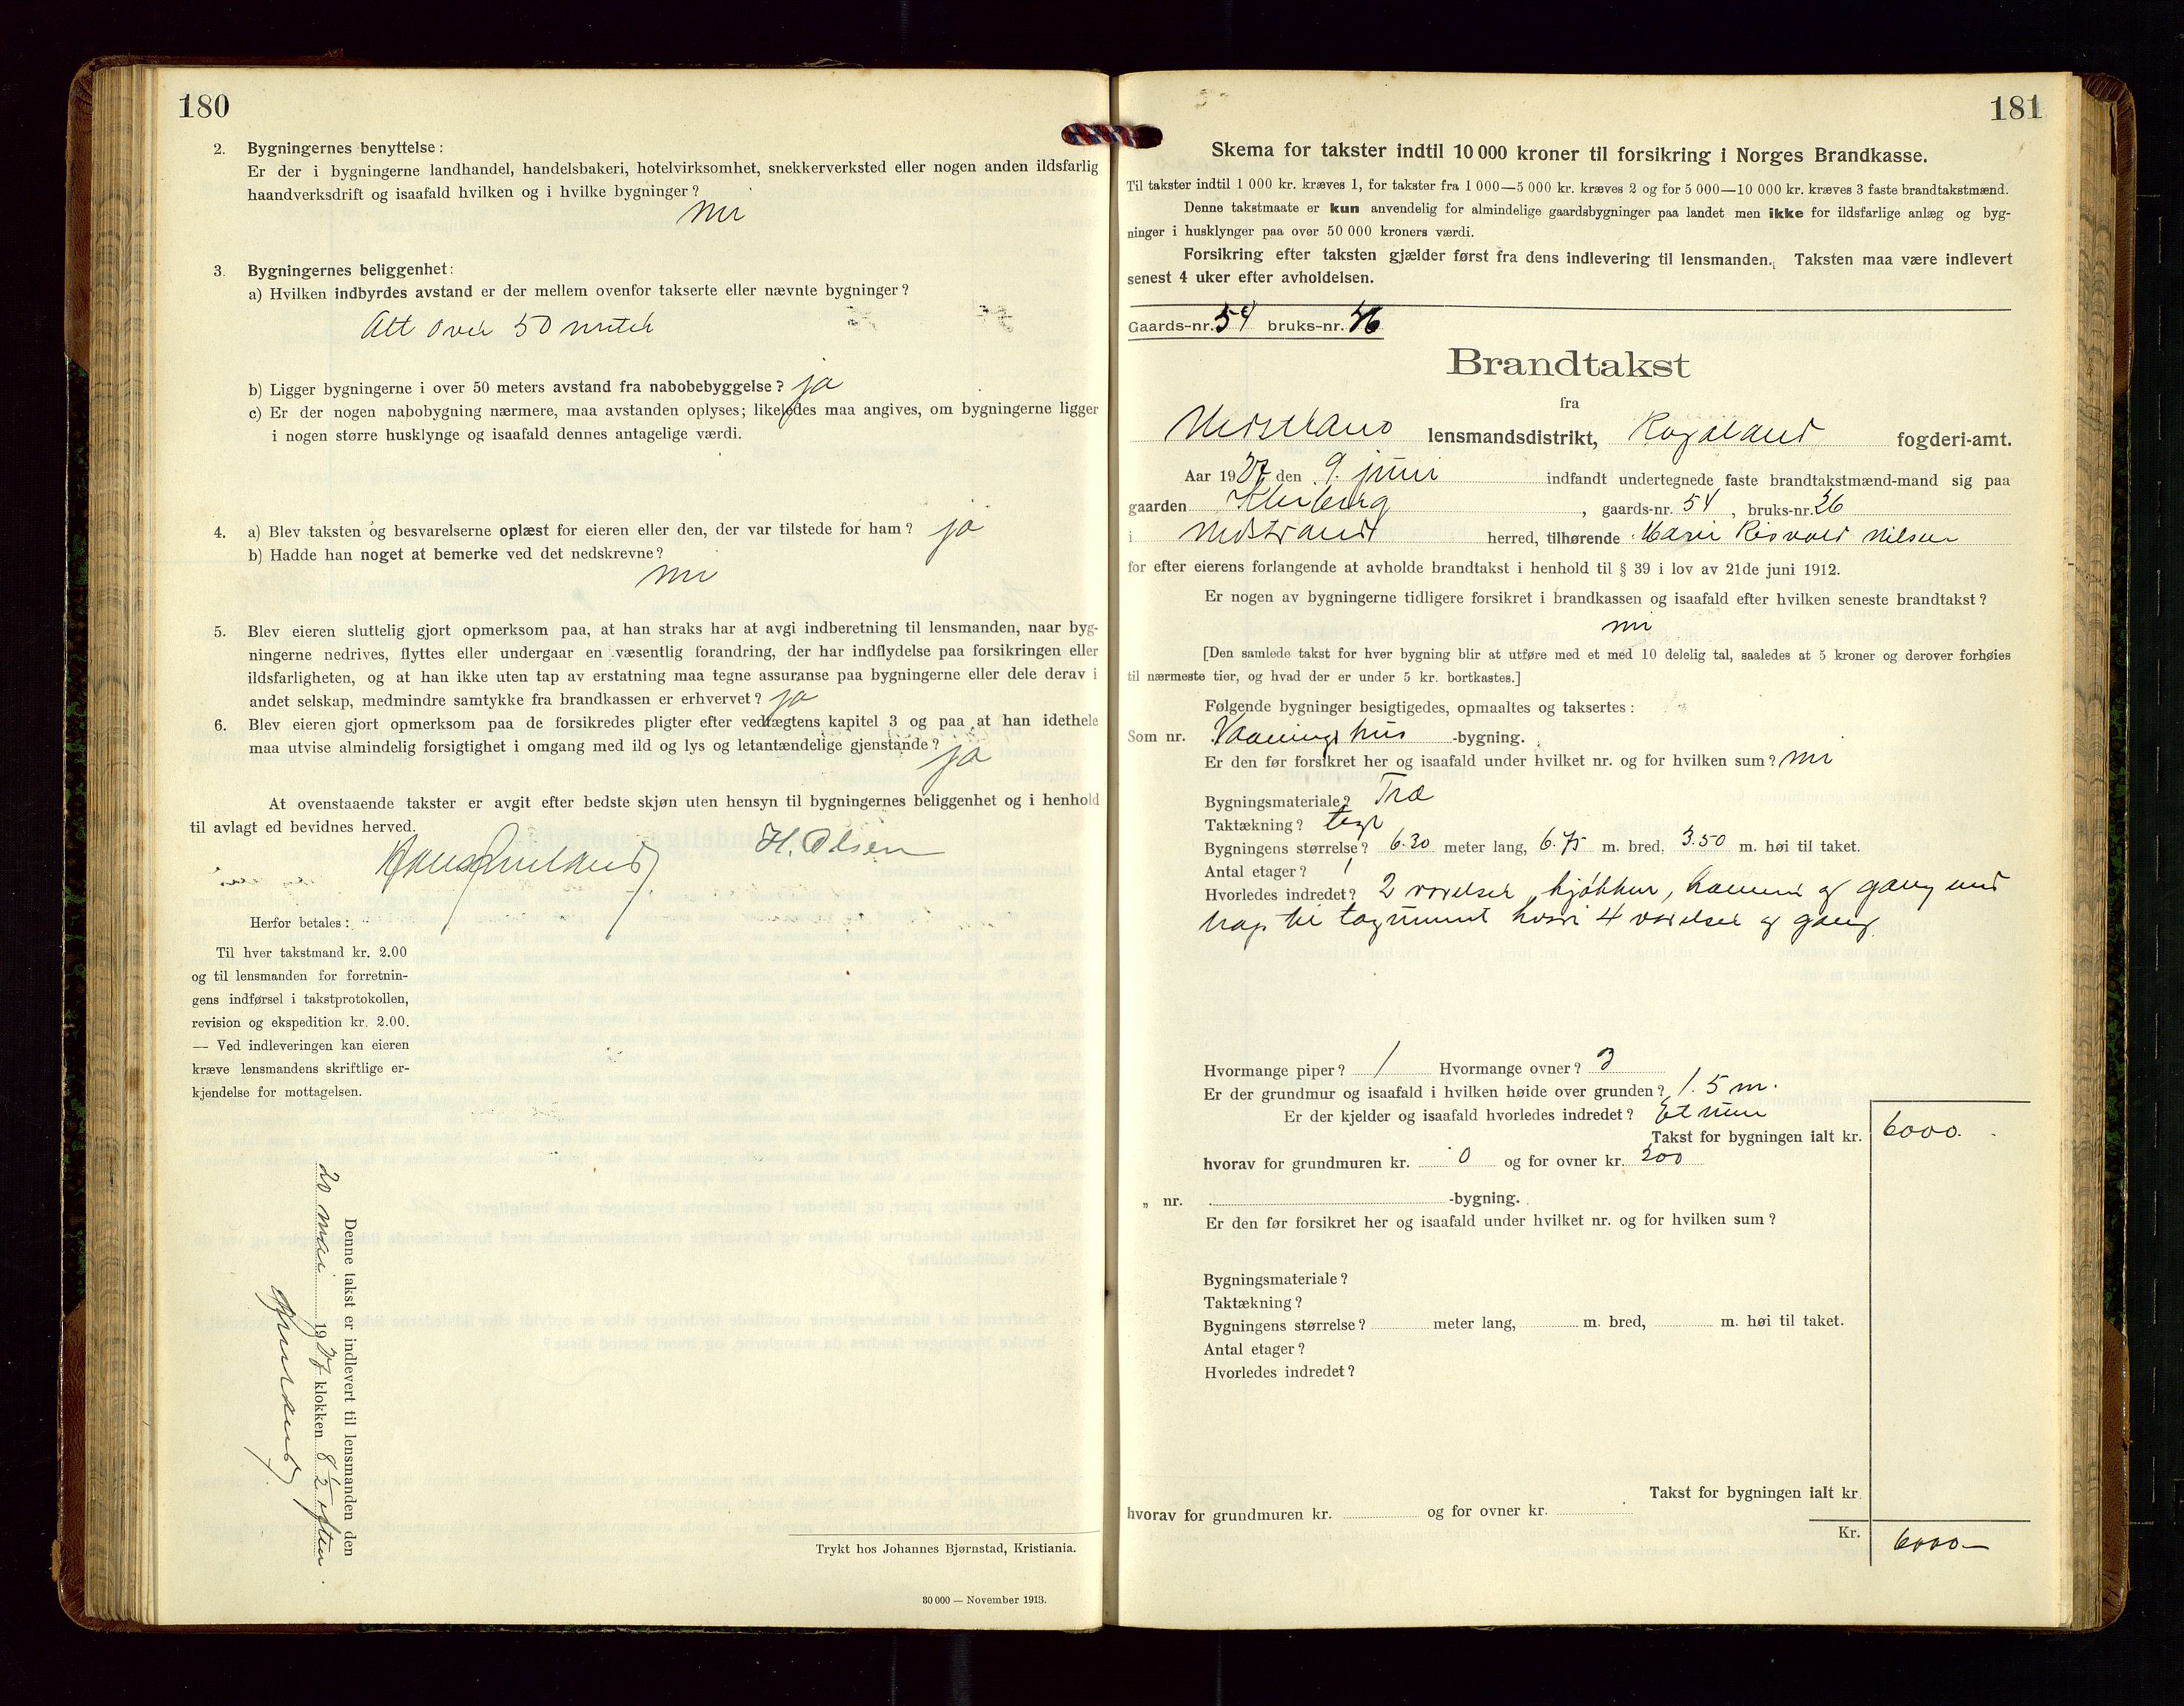 180
2. Bygningernes benyttelse:
Er der i bygningerne landhandel, handelsbakeri, hotelvirksomhet, snekkerverksted eller nogen anden ildsfarlig
haandverksdrift og isaafald hvilken og i hvilke bygninger?
nei
3. Bygningernes beliggenhet:
a) Hvilken indbyrdes avstand er der mellem ovenfor takserte eller nævnte bygninger?
Alt over 50 meter
b) Ligger bygningerne i over 50 meters avstand fra nabobebyggelse? ja
c) Er der nogen nabobygning nærmere, maa avstanden oplyses; likeledes maa angives, om bygningerne ligger
i nogen større husklynge og isaafald dennes antagelige værdi.
4. a) Blev taksten og besvarelserne oplæst for eieren eller den, der var tilstede for ham? ja
b) Hadde han noget at bemerke ved det nedskrevne?
nei
5. Blev eieren sluttelig gjort opmerksom paa, at han straks har at avgi indberetning til lensmanden, naar byg-
ningerne nedrives, flyttes eller undergaar en væsentlig forandring, der har indflydelse paa forsikringen eller
ildsfarligheten, og at han ikke uten tap av erstatning maa tegne assuranse paa bygningerne eller dele derav i
andet selskap, medmindre samtykke fra brandkassen er erhvervet? ja
6. Blev eieren gjort opmerksom paa de forsikredes pligter efter vedtægtens kapitel 3 og paa at han idethele
maa utvise almindelig forsigtighet i omgang med ild og lys og letantændelige gjenstande? ja
At ovenstaaende takster er avgit efter bedste skjøn uten hensyn til bygningernes beliggenhet og i henhold
til avlagt ed bevidnes herved.
H. Olsen
Herfor betales:
Til hver takstmand kr. 2.00
og til lensmanden for forretnin-
gens indførsel i takstprotokollen,
revision og ekspedition kr. 2.00.
— Ved indleveringen kan eieren
kræve lensmandens skriftlige er-
kjendelse for mottagelsen.
Denne takst er indlevert til lensmanden den
20 mai 1927 klokken 8 1/2 eftm.
Trykt hos Johannes Bjørnstad, Kristiania.
30 000 — November 1913.
181
Skema for takster indtil 10 000 kroner til forsikring i Norges Brandkasse.
Til takster indtil 1 000 kr. kræves 1, for takster fra 1 000—5 000 kr. kræves 2 og for 5 000—10 000 kr. kræves 3 faste brandtakstmænd.
Denne takstmaate er kun anvendelig for almindelige gaardsbygninger paa landet men ikke for ildsfarlige anlæg og byg-
ninger i husklynger paa over 50 000 kroners værdi.
Forsikring efter taksten gjælder først fra dens indlevering til lensmanden. Taksten maa være indlevert
senest 4 uker efter avholdelsen.
Gaards-nr. 54 bruks-nr. 36
Brandtakst
fra
Nedstrand lensmandsdistrikt, Rogaland fogderi-amt.
Aar 1927 den 9. juni indfandt undertegnede faste brandtakstmænd-mand sig paa
gaarden , gaards-nr. 54, bruks-nr. 36
i Nedstrand herred, tilhørende Marie Risvold Nilsen
for efter eierens forlangende at avholde brandtakst i henhold til § 39 i lov av 21de juni 1912.
Er nogen av bygningerne tidligere forsikret i brandkassen og isaafald efter hvilken seneste brandtakst?
nei
[Den samlede takst for hver bygning blir at utføre med et med 10 delelig tal, saaledes at 5 kroner og derover forhøies
til nærmeste tier, og hvad der er under 5 kr. bortkastes.]
Følgende bygninger besigtigedes, opmaaltes og taksertes:
Som nr. Vaaningshus -bygning.
Er den før forsikret her og isaafald under hvilket nr. og for hvilken sum? nei
Bygningsmateriale? Træ
Taktækning? tegl
Bygningens størrelse? 6.20 meter lang, 6.75 m. bred, 3.50 m. høi til taket.
Antal etager? 1
Hvorledes indredet? 2 værelser, kjøkken, kammer og gang med
trap til tagrummet hvori 4 værelser og gang
Hvormange piper? 1 Hvormange ovner? 3
Er der grundmur og isaafald i hvilken høide over grunden? 1.5 m.
Er der kjelder og isaafald hvorledes indredet? Et rum
Takst for bygningen ialt kr. 6000.
hvorav for grundmuren kr. 0 og for ovner kr. 200
„ nr. -bygning.
Er den før forsikret her og isaafald under hvilket nr. og for hvilken sum?
Bygningsmateriale?
Taktækning?
Bygningens størrelse? meter lang, m. bred, m. høi til taket.
Antal etager?
Hvorledes indredet?
Takst for bygningen ialt kr.
hvorav for grundmuren kr. og for ovner kr.
Kr. 6000—